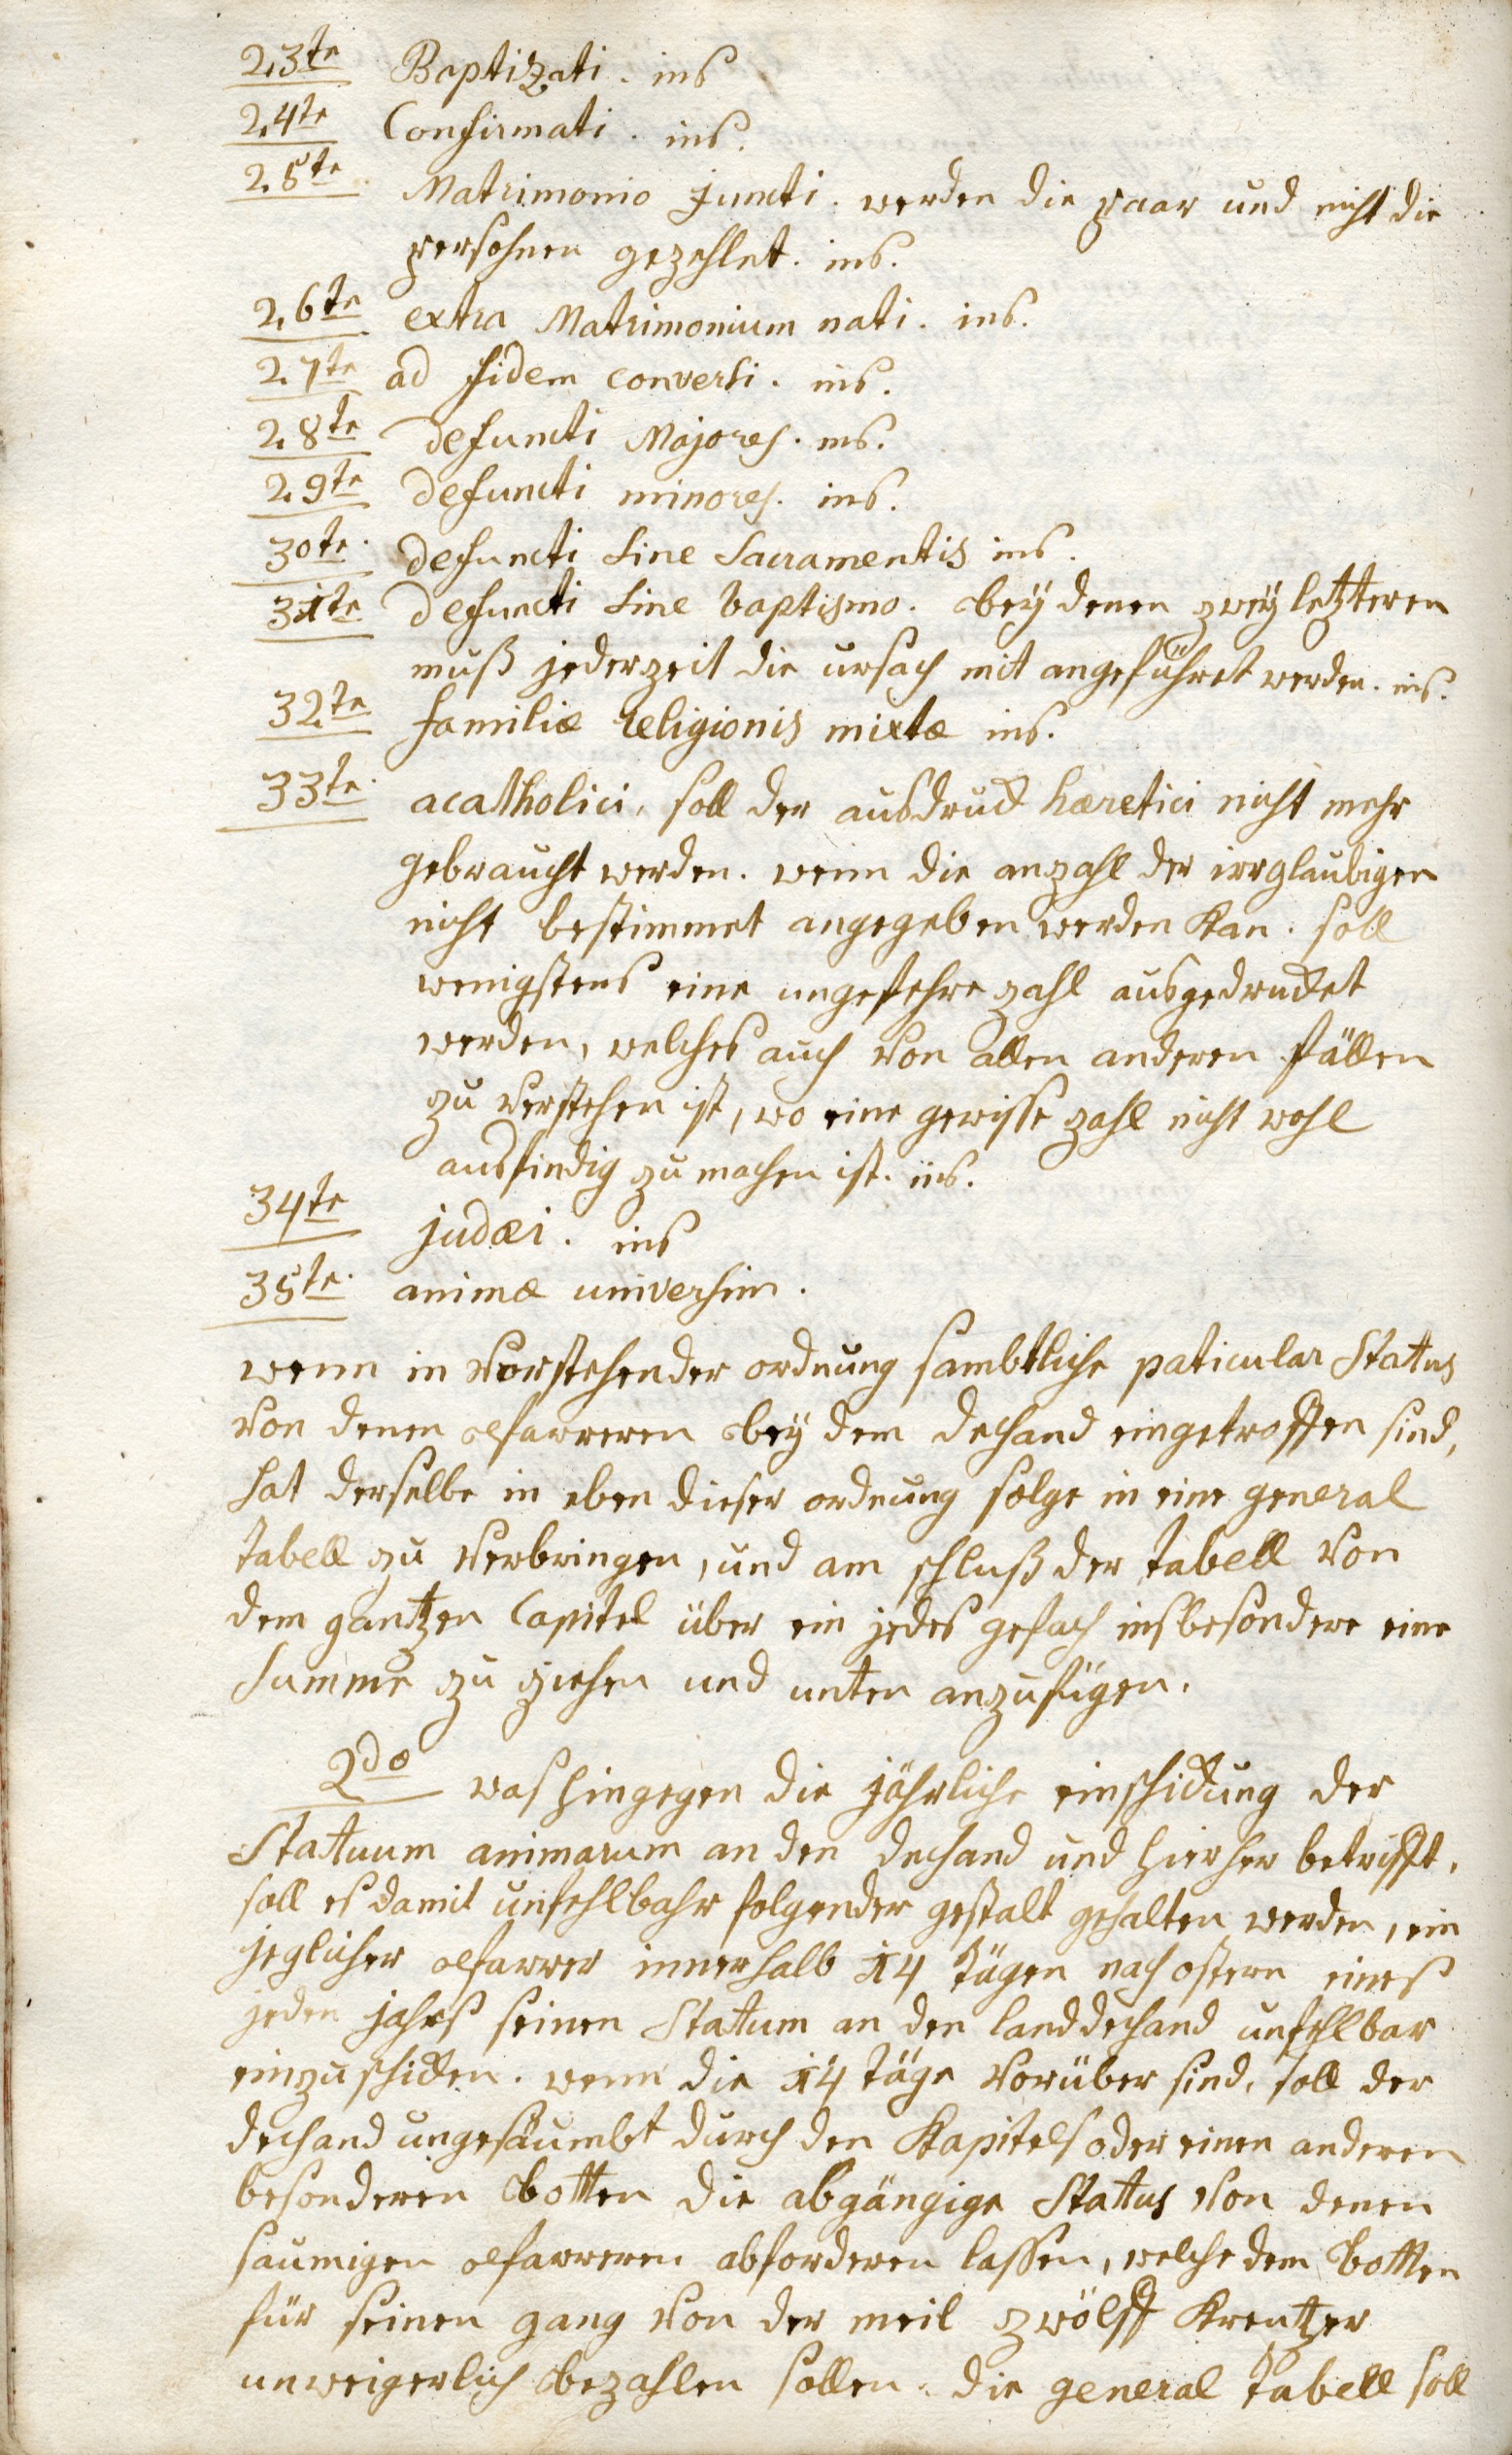 23te Baptizati. ins
24te Confirmati. ins.
25te Matrimonio juncti. werden die paar und nicht die
persohnen gezehlet. ins.
26te extra Matrimonium nati. ins.
27te ad fidem conversi. ins.
28te defuncti Majores. ins.
29te defuncti minores. ins.
30te. defuncti sine Sacramentis ins.
31te defuncti sine baptismo. bey denen zwey letzteren
muß jederzeit die ursach mit angeführet werden. ins.
32te familiæ religionis mixtæ ins.
33te. acatholici, soll der ausdruck hæretici nicht mehr
gebraucht werden. wenn die anzahl der irrglaubigen
nicht bestimmet angegeben werden kan. soll
wenigstens eine ungefehre zahl ausgedrucket
werden, welches auch von allen anderen fällen
zu verstehen ist, wo eine gewisse zahl nicht wohl
ausfindig zu machen ist. ins.
34te judæi. ins
35te. animæ universim.
wenn in vorstehender ordnung sambtliche paticular Status
von denen pfarreren bey dem dechand eingetroffen sind,
hat derselbe in eben dieser ordnung solge in eine general
tabell zu verbringen, und am schluß der tabell von
dem gantzen Capitel über ein jedes gefach insbesondere eine
summe zu ziehen und unten anzufügen.
2do was hingegen die jährliche einschickung der
Statuum animarum an den dechand und hierher betrifft,
soll es damit unfehlbahr folgender gestalt gehalten werden, ein
jeglicher pfarrer innerhalb 14 tägen nach ostern eines
jeden jahrs seinen Statum an den landdechand unfehlbar
einzuschicken. wenn die 14 täge vorüber sind, soll der
dechand ungesäumbt durch den Kapitels oder einen anderen
besonderen botten die abgängige Status von denen
saumigen pfarreren abforderen lassen, welche dem botten
für seinen gang von der meil zwölff Kreutzer
unweigerlich bezahlen sollen. die general tabell soll